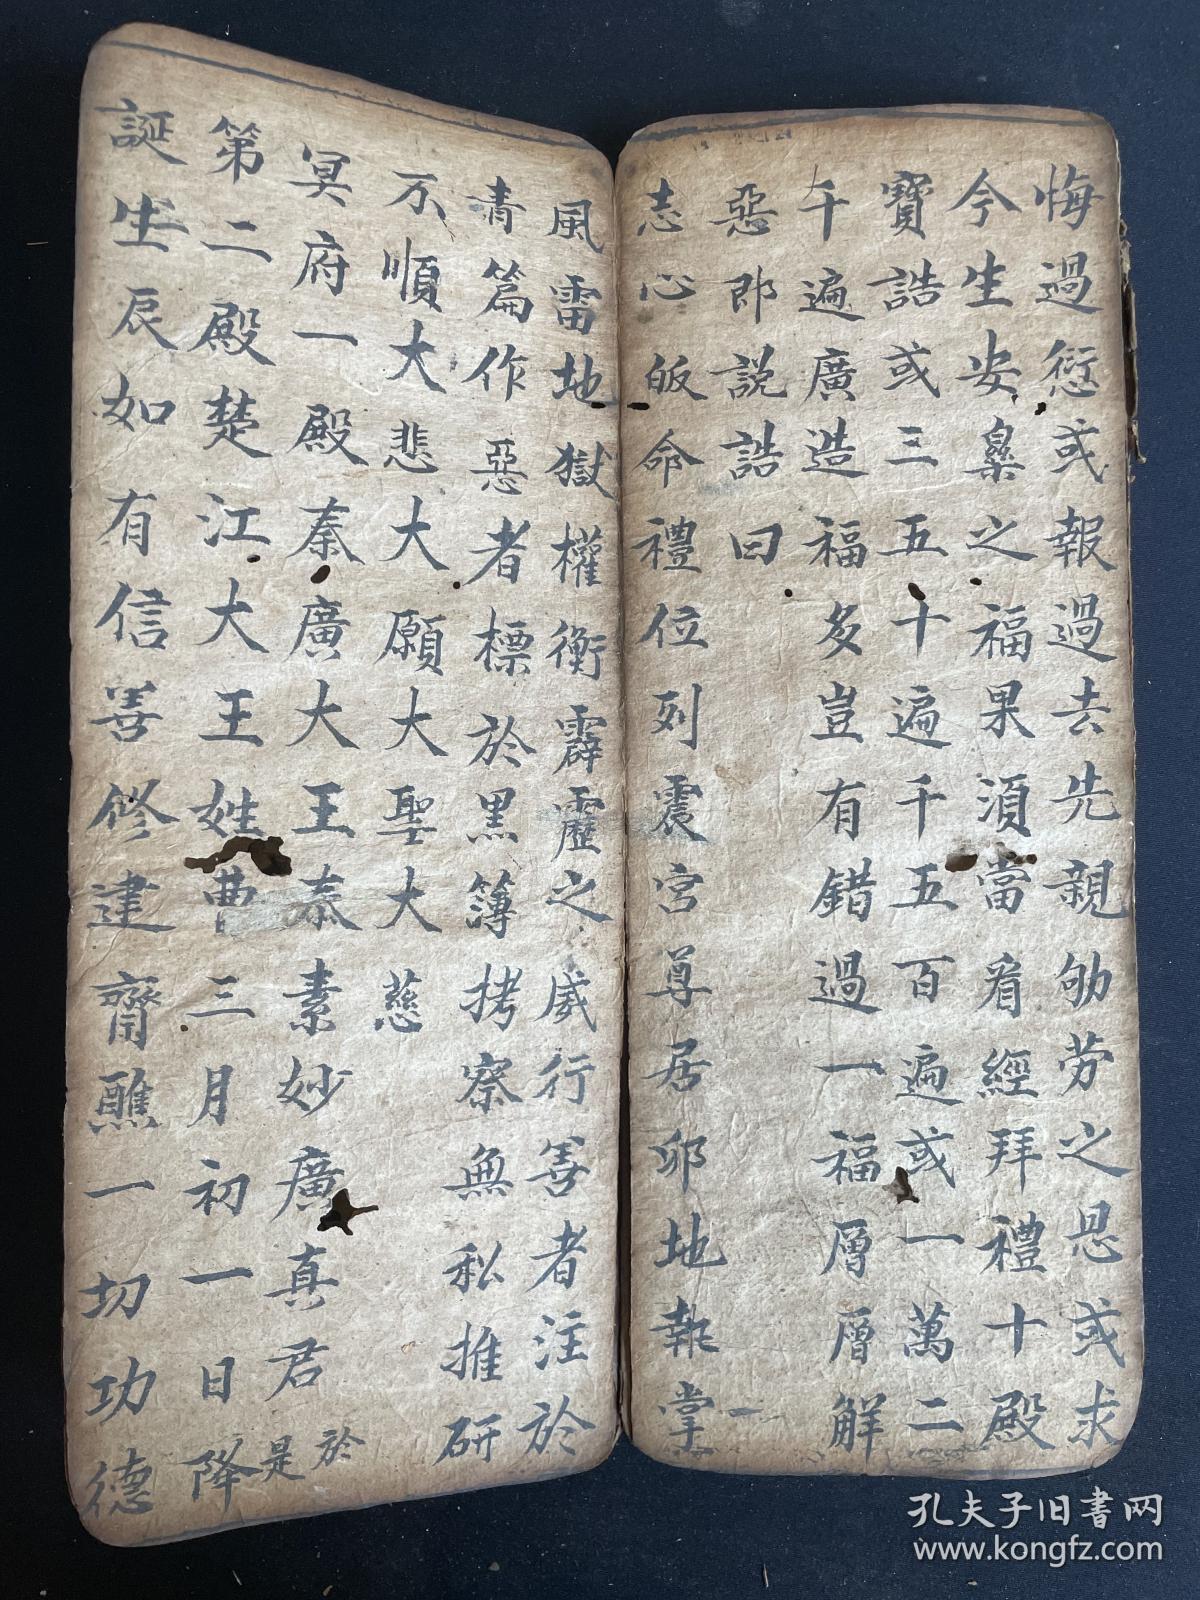 悔過愆或報過去先親劬劳之恩或求
今生安樂之福果須當看經拜禮十殿
寶誥或三五十遍千五百遍或一萬二
千遍廣造福多豈有錯過一福層層解
惡即説誥曰
志心皈命禮位列震宮尊居卯地執掌
風雷地獄權衡霹靂之威行善者注於
青篇作惡者標於黑簿拷察無私推研
不順大悲大願大聖大慈
冥府一殿秦廣大王泰素妙廣真君於是
第二殿楚江大王姓曹三月初一日降
誕生辰如有信善修建齋醮一切功德
孔夫子旧书网
www.kongfz.com